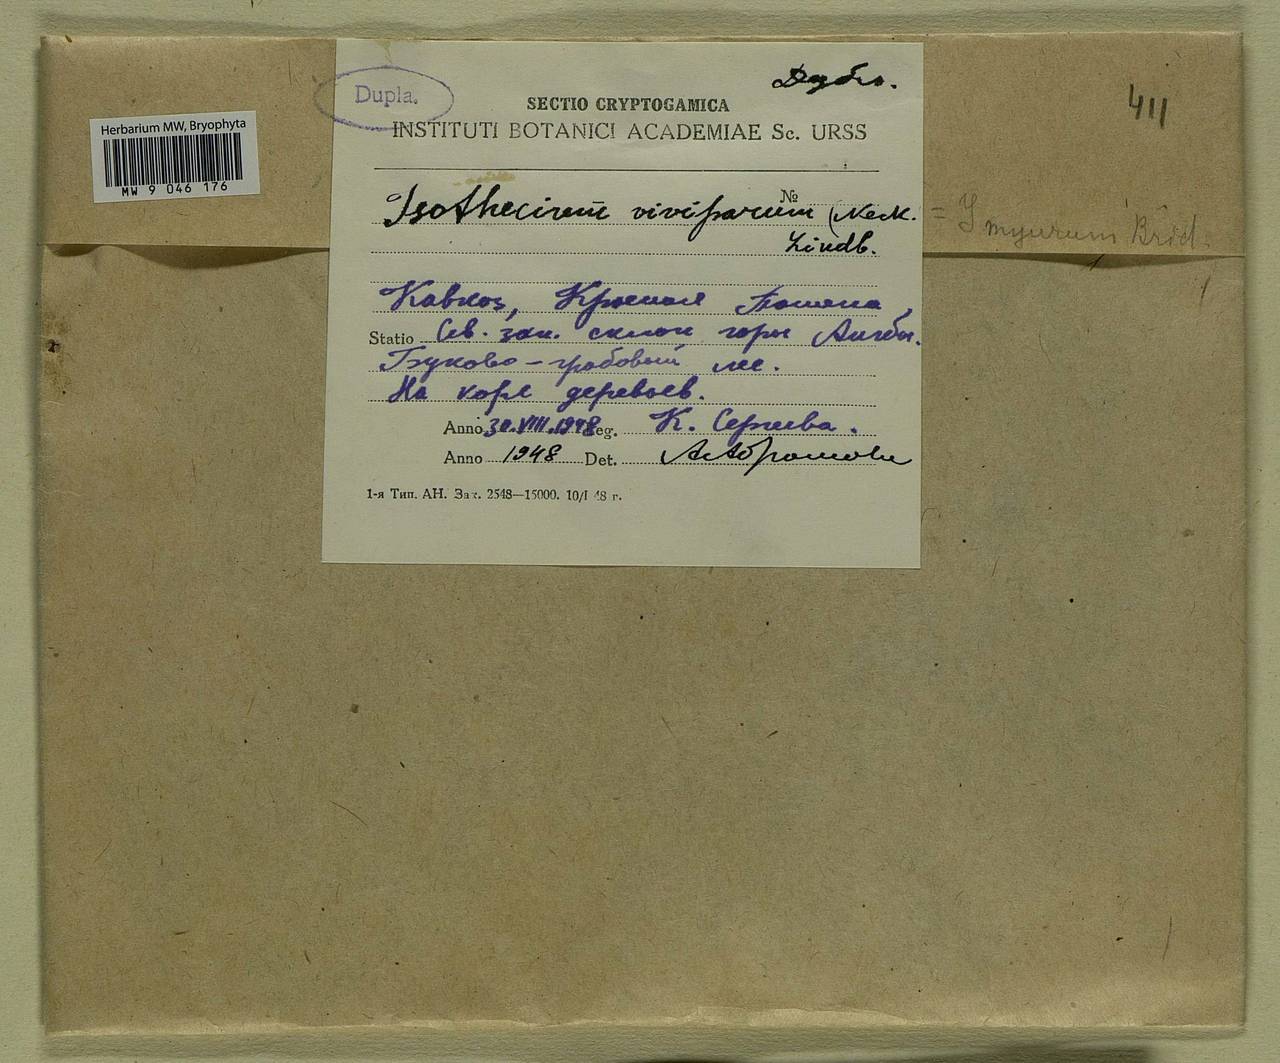 Dupla.
Дубл.
SECTIO CRYPTOGAMICA
INSTITUTI BOTANICI ACADEMIAE Sc. URSS
411
Herbarium MW, Bryophyta
MW 9 046 176
№
Isothecium viviparum (Neck.
Lindb.
= I myurum Brid.
Кавказ, Красная Поляна,
Statio Сев. зап. склон горы Аигбы.
Буково-грабовый лес.
На коре деревьев.
Anno 30.VIII.1948 Leg. К. Сергеева.
Anno 1948 Det. А. Абрамова
1-я Тип. АН. Зак. 2548—15000. 10/I 48 г.